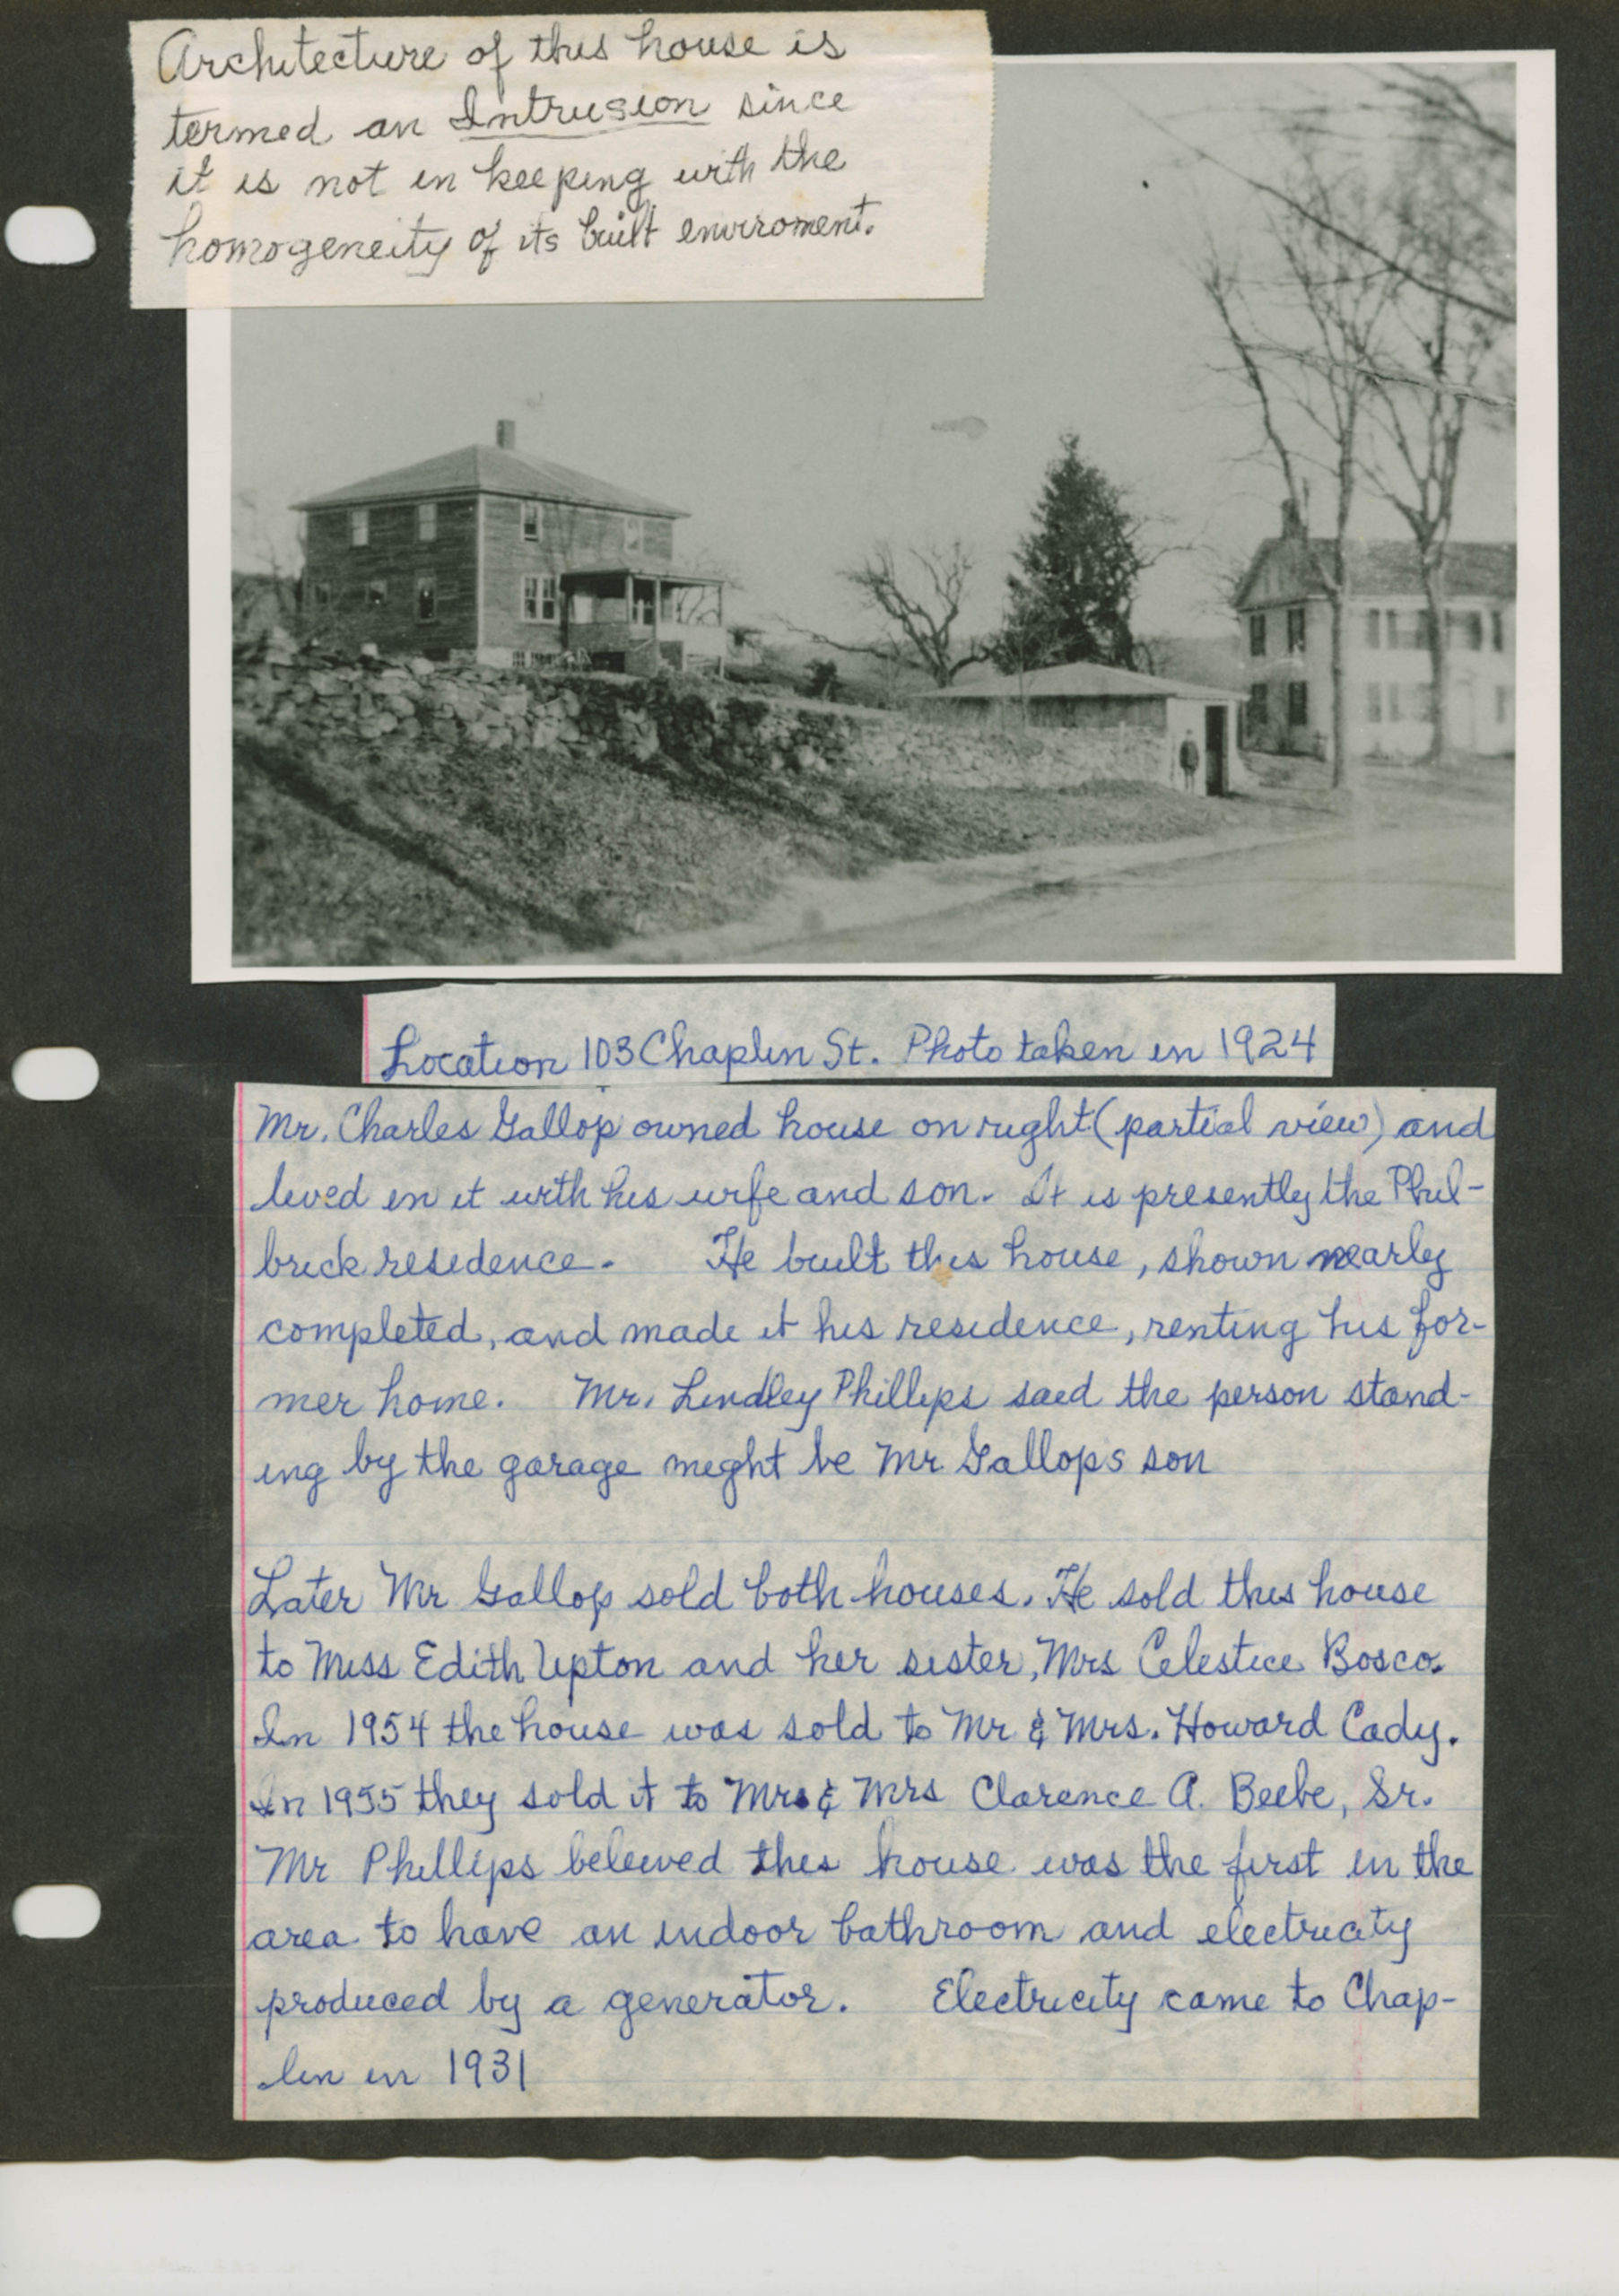 Architecture of this house is
termed an Intrusion since
it is not in keeping with the
homogeneity of its built enviroment.
Location 103 Chaplin St. Photo taken in 1924
Mr. Charles Gallop owned house on right (partial view) and
lived in it with his wife and son. It is presently the Phil-
brick residence. He built this house, shown nearly
completed, and made it his residence, renting his for-
mer home. Mr. Lindley Phillips said the person stand-
ing by the garage might be Mr Gallops son
Later Mr Gallop sold both houses. He sold this house
to Miss Edith Upton and her sister, Mrs Celestice Bosco.
In 1954 the house was sold to Mr & Mrs. Howard Cady.
In 1955 they sold it to Mr & Mrs Clarence A. Beebe, Sr.
Mr Phillips believed this house was the first in the
area to have an indoor bathroom and electricity
produced by a generator. Electricity came to Chap-
lin in 1931